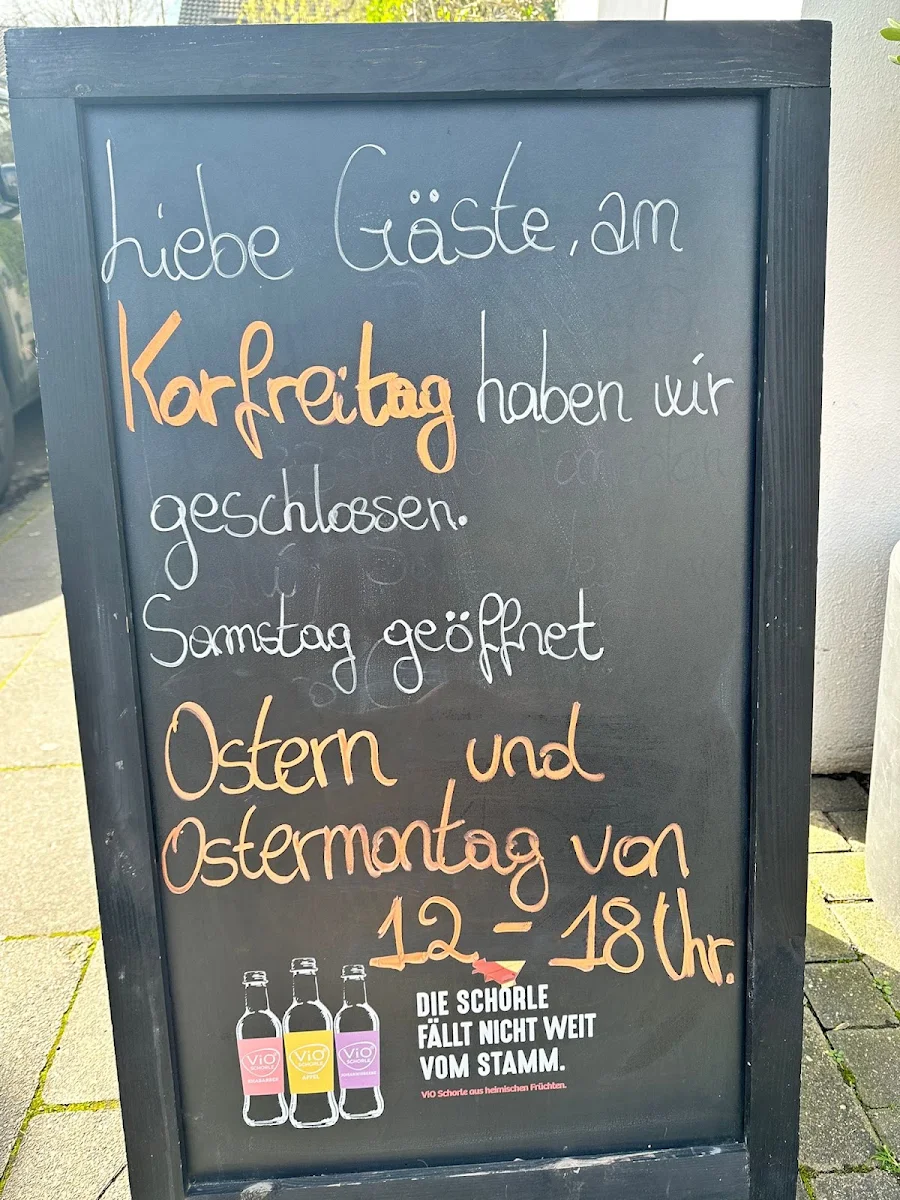 Liebe Gäste, am
Karfreitag haben wir
geschlossen.
Samstag geöffnet
Ostern und
Ostermontag von
12 - 18 Uhr.
DIE SCHORLE
FÄLLT NICHT WEIT
VOM STAMM.
ViO Schorle aus heimischen Früchten.
ViO
SCHORLE
RHABARBER
ViO
SCHORLE
APFEL
ViO
SCHORLE